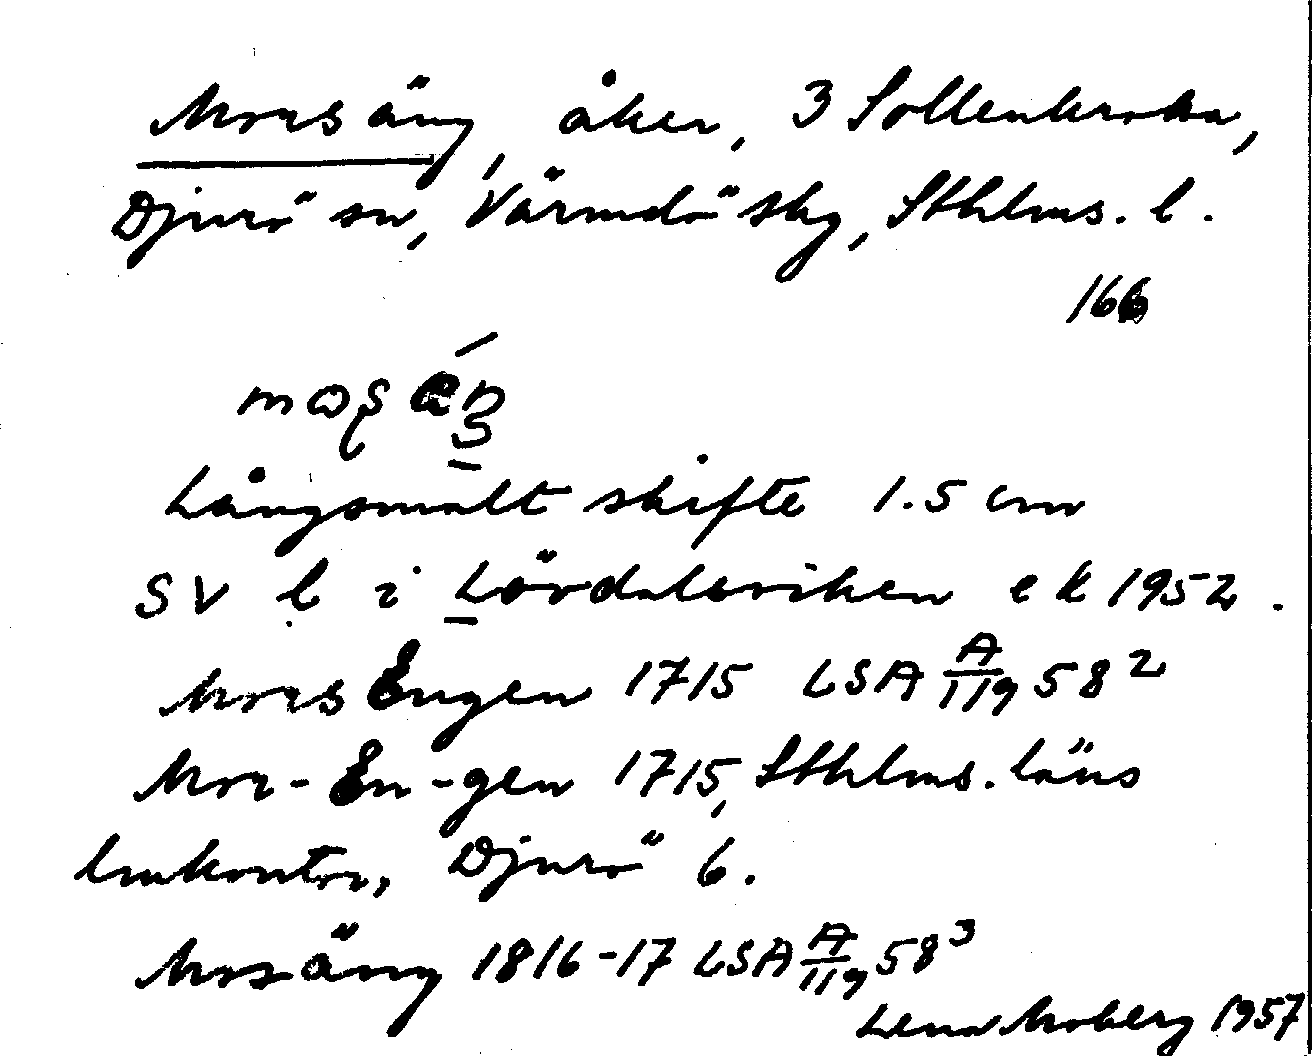 Morsäng, åker, 3 Sollenkroka,
Djurö sn, Värmdö skg, Sthlms. l.
166
Långsmalt skifte 1.5 cm
SV l i Lördalsviken ek 1952.
MorsEngen 1715 LSA A/119 58²
Mor-En-gen 1715, Sthlms. läns
lmkontor, Djurö 6.
Mosäng 1816-17 LSA A/119 58³
Lena Moberg 1957